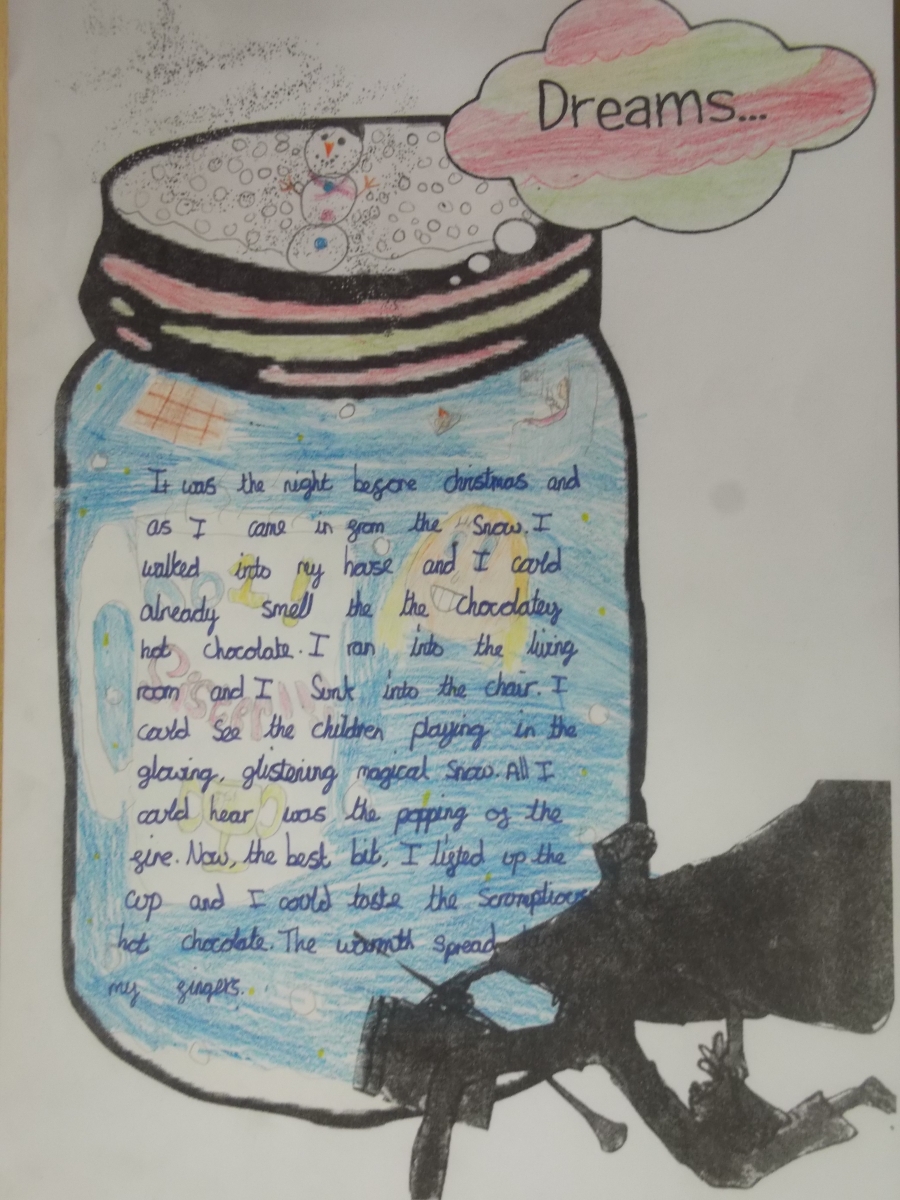 Dreams...
It was the night before christmas and
as I came in from the snow. I
walked into my house and I could
already smell the the chocolatey
hot chocolate. I ran into the living
room and I sunk into the chair. I
could see the children playing in the
glowing, glistening magical snow. All I
could hear was the popping of the
fire. Now, the best bit, I lifted up the
cup and I could taste the scromptious
hot chocolate. The warmth spread
my fingers.